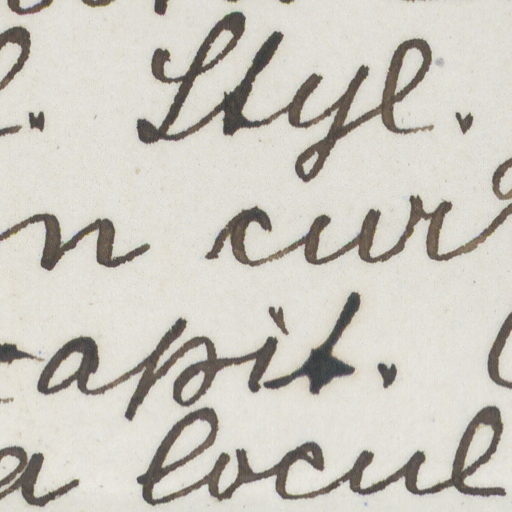 l. Styl.
n cur
apit.
a locul